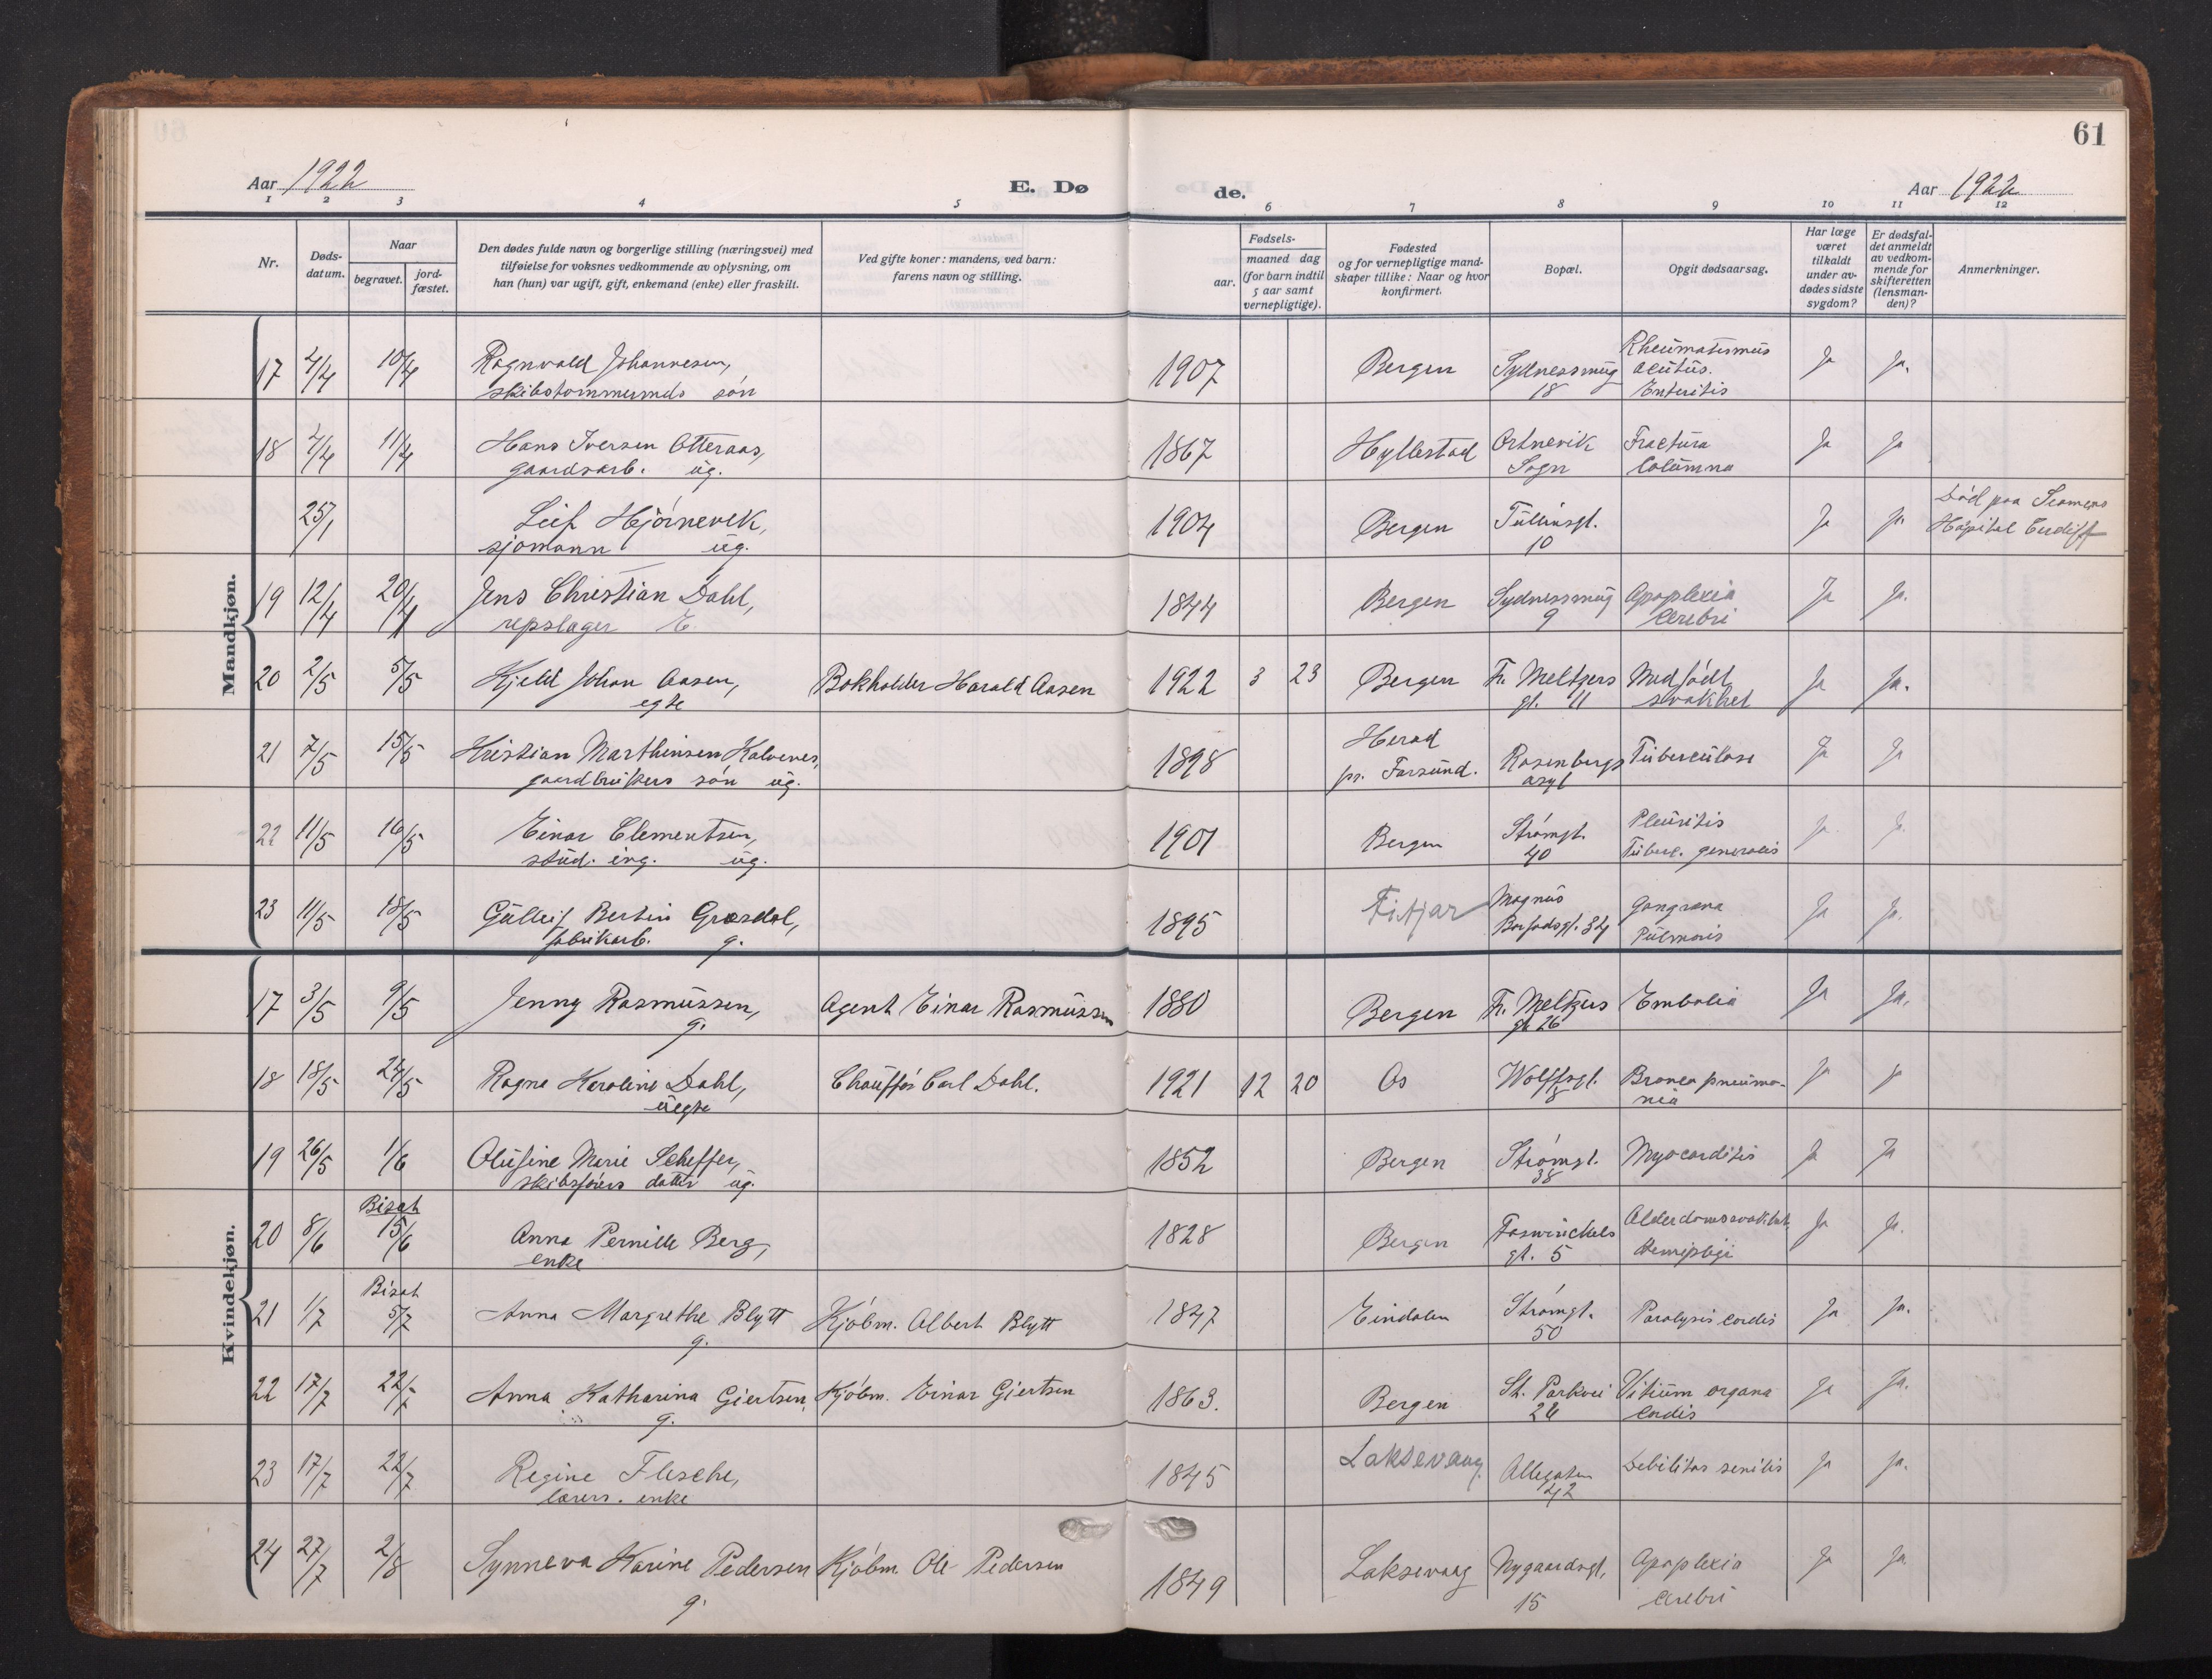 61
Aar 1922
E. Dø
de.
Aar 1922
1 2 3 4 5 6 7 8 9 10 11 12
Nr.
Døds-
datum.
Naar
begravet.
jord-
fæstet.
Den dødes fulde navn og borgerlige stilling (næringsvei) med
tilføielse for voksnes vedkommende av oplysning, om
han (hun) var ugift, gift, enkemand (enke) eller fraskilt.
Ved gifte koner: mandens, ved barn:
farens navn og stilling.
Fødsels-
aar.
maaned dag
(for barn indtil
5 aar samt
vernepligtige).
Fødested
og for vernepligtige mand-
skaper tillike: Naar og hvor
konfirmert.
Bopæl.
Opgit dødsaarsag.
Har læge
været
tilkaldt
under av-
dødes sidste
sygdom?
Er dødsfal-
det anmeldt
av vedkom-
mende for
skifteretten
(lensman-
den)?
Anmerkninger.
Mandkjøn.
17 4/4 10/4 Ragnvald Johannesen, 1907 Bergen Sydnessmug Rheumatismus Ja Ja.
skibstømmermds søn 18 acutus.
Enteritis
18 4/4 11/4 Hans Iversen Otteraas, 1867 Hyllestad Ortnevik Fractura Ja Ja
gaardsarb. ug. Sogn Columna
25/1 Leif Hjørnevik, 1904 Bergen Tulinsgt. Ja Ja Død paa Seamens
sjømann ug. 10 Hospital Cardiff
19 12/4 20/4 Jens Christian Dahl, 1844 Bergen Sydnessmug Apoplexia Ja Ja.
repslager E. 9 Cerebri
20 2/5 5/5 Kjeld Johan Aasen, Bokholder Harald Aasen 1922 3 23 Bergen Fr. Meltzers Medfødt Ja Ja.
egte gt. 11 svakhet
21 7/5 15/5 Kristian Marthinsen Kalvenes, 1898 Herad Rosenbergs Tuberculose Ja Ja
gaardbrukers søn ug. pr. Farsund. asyl
22 11/5 16/5 Einar Clementsen, 1901 Bergen Strømgt. Pleuritis Ja Ja
stud. ing. ug. 40 Tuberc. generalis
23 11/5 18/5 Gulleif Bertin Græsdal, 1895 Fitjar Magnus Gangræna Ja Ja.
fabrikarb. g. Barfodsgt. 34 Pulmonis
Kvindekjøn.
17 3/5 9/5 Jenny Rasmussen, Agent Einar Rasmussen 1880 Bergen Fr. Meltzers Embolia Ja Ja.
g. gt 26
18 18/5 24/5 Ragna Karoline Dahl, Chauffør Carl Dahl. 1921 12 20 Os Wolffsgt. Broncopneumo- Ja Ja
uegte 8 nia
19 26/5 1/6 Olufine Marie Scheffer, 1852 Bergen Strømgt. Myocarditis Ja Ja
skibsførers datter ug. 38
Bisat
20 8/6 15/6 Anna Pernille Berg, 1828 Bergen Foswinckels Alderdomssvakhet Ja Ja.
enke gt. 5 Hemiplegi
Bisat
21 1/7 5/7 Anna Margrethe Blytt Kjøbm. Albert Blytt 1847 Eindalen Strømgt. Paralysis cordis Ja Ja.
g. 50
22 17/7 22/7 Anna Katharina Giertsen, Kjøbm. Einar Giertsen 1863. Bergen St. Parkvei Vitium organa Ja Ja.
g. 26 Cordis
23 17/7 22/7 Regine Flesche, 1845 Laksevaag. Allegaten Debilitas senilis Ja Ja.
lærers. enke 42
24 27/7 2/8 Synneva Karine Pedersen Kjøbm. Ole Pedersen 1849 Laksevaag Nygaardsgt. Apoplexia Ja Ja
g. 15 Cerebri